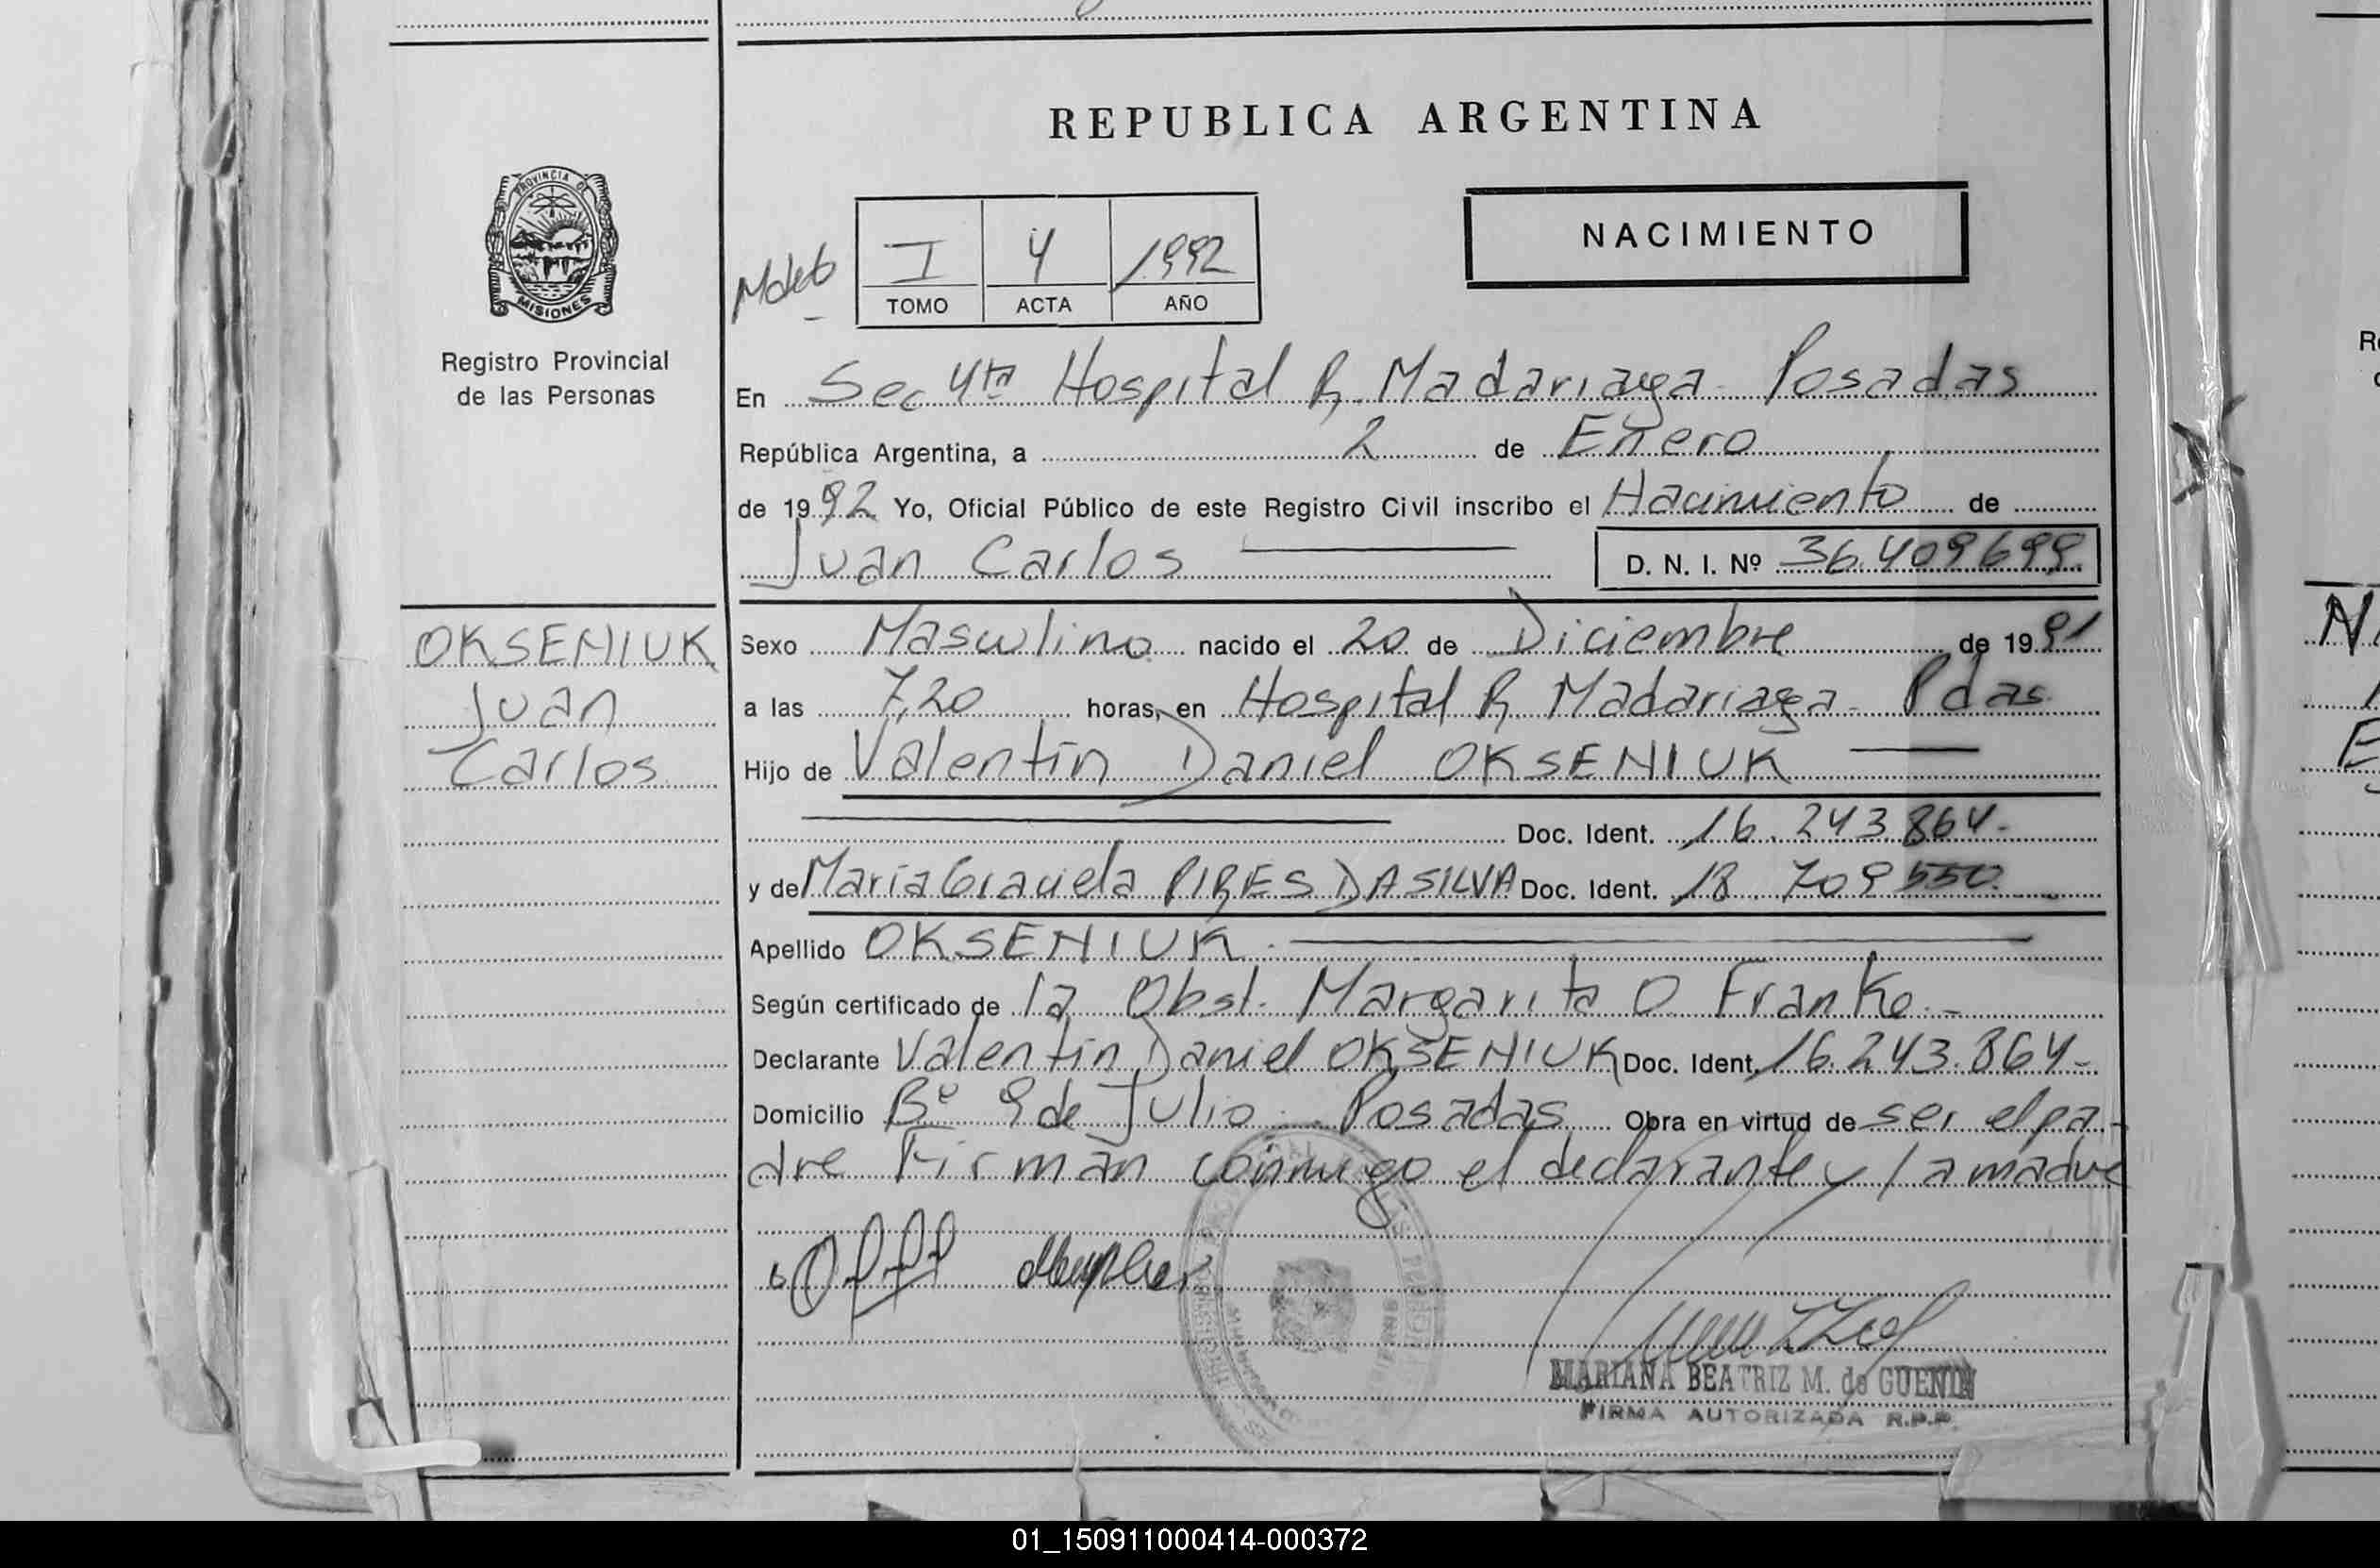 REPUBLICA ARGENTINA
PROVINCIA DE
MISIONES
Registro Provincial
de las Personas
NACIMIENTO
I 4 1992
TOMO ACTA AÑO
En Sec 4ta Hospital R. Madariaga Posadas
República Argentina, a 2 de Enero
de 1992 Yo, Oficial Público de este Registro Civil inscribo el Nacimiento de
Juan Carlos D. N. I. Nº 36.409699
OKSENIUK
Juan
Carlos
Sexo Masculino nacido el 20 de Diciembre de 1991
a las 7,20 horas, en Hospital R. Madariaga - Pdas
Hijo de Valentín Daniel OKSENIUK
Doc. Ident. 16.243.864-
y de María Graciela PIRES DA SILVA Doc. Ident. 18.709550.
Apellido OKSENIUK.
Según certificado de la Obst. Margarita O Franke.-
Declarante Valentín Daniel OKSENIUK Doc. Ident. 16.243.864-
Domicilio Bº 9 de Julio - Posadas Obra en virtud de ser el pa-
dre Firman conmigo el declarante y la madre
MARIANA BEATRIZ M. de GUENIN
FIRMA AUTORIZADA R.P.P.
01_150911000414-000372